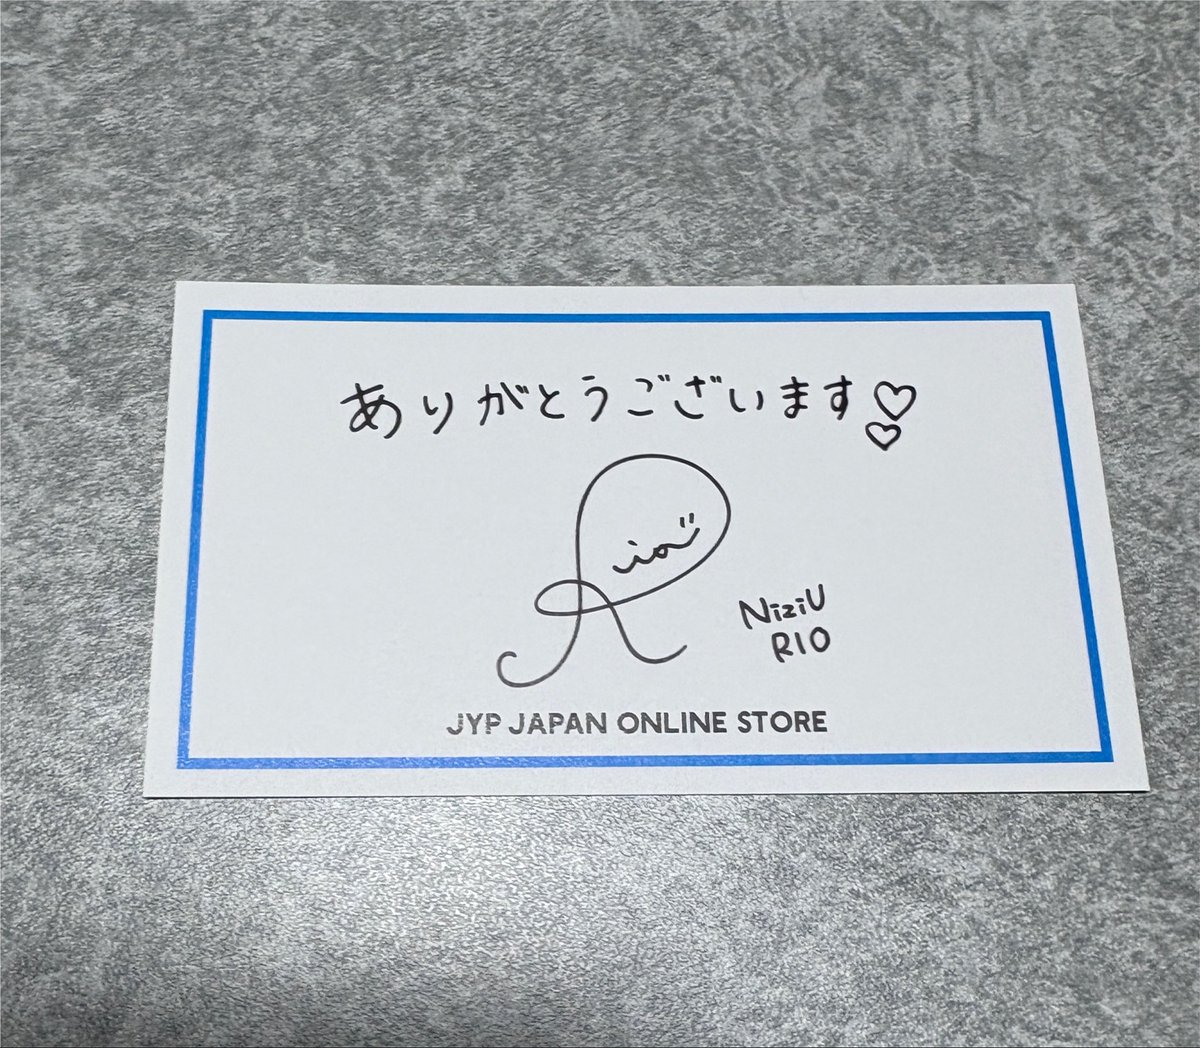 ありがとうございます♡♡
Rio
NiziU
RIO
JYP JAPAN ONLINE STORE